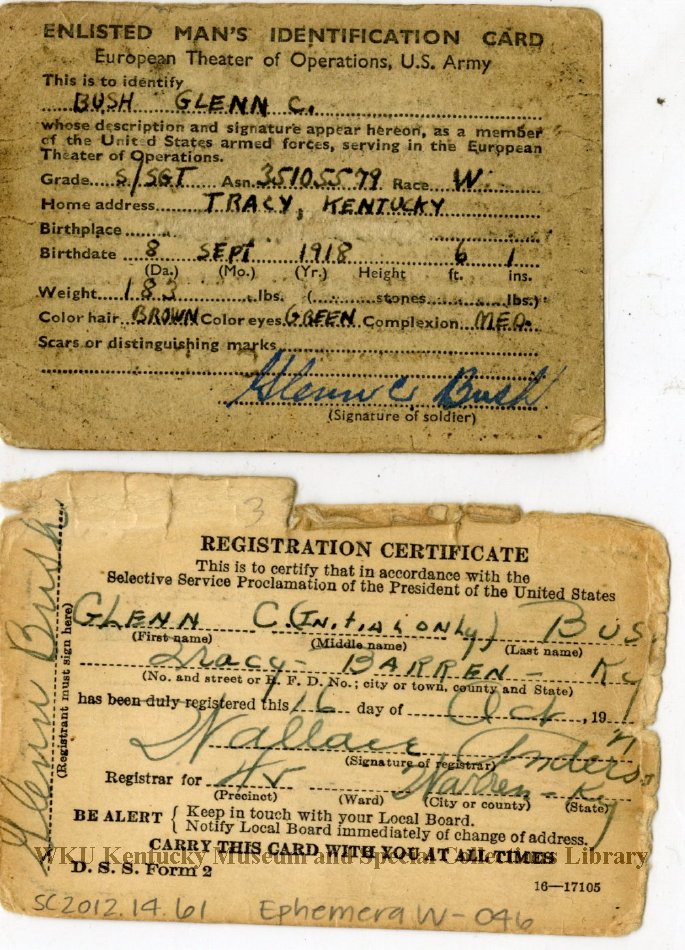 ENLISTED MAN'S IDENTIFICATION CARD
European Theater of Operations, U.S. Army
This is to identify
BUSH GLENN C.
whose description and signature appear hereon, as a member
of the United States armed forces, serving in the European
Theater of Operations.
Grade S/SGT Asn. 35105579 Race W.
Home address TRACY, KENTUCKY
Birthplace
Birthdate 8 SEPT 1918 6 1
(Da.) (Mo.) (Yr.) Height ft. ins.
Weight 183 lbs. ( stones lbs.)
Color hair BROWN Color eyes GREEN Complexion MED.
Scars or distinguishing marks
Glenn C Bush
(Signature of soldier)
3
REGISTRATION CERTIFICATE
This is to certify that in accordance with the
Selective Service Proclamation of the President of the United States
GLENN C (INITIAL ONLY) BUS
(First name) (Middle name) (Last name)
Tracy - BARREN - Ky
(No. and street or R. F. D. No.; city or town, county and State)
has been duly registered this 16 day of Oct, 19
Wallace Anders
(Signature of registrar)
Registrar for Warren - Ky
(Precinct) (Ward) (City or county) (State)
BE ALERT { Keep in touch with your Local Board.
Notify Local Board immediately of change of address.
CARRY THIS CARD WITH YOU AT ALL TIMES
D. S. S. Form 2
16—17105
Glenn Bush
(Registrant must sign here)
WKU Kentucky Museum and Special Collections Library
SC2012.14.61 Ephemera W-046